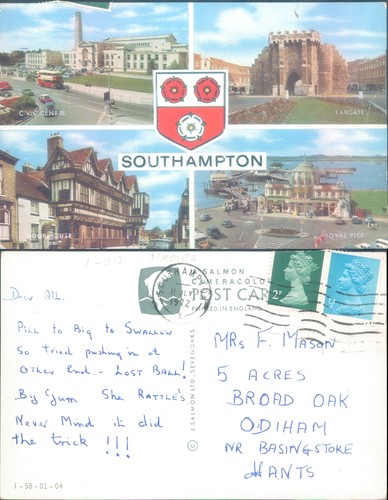 CIVIC CENTRE
BARGATE
SOUTHAMPTON
TUDOR HOUSE
ROYAL PIER
1-00 HAMPS
SALMON
CAMERACOLOR
POST CARD
PRINTED IN ENGLAND
JLY
1972
Dear All.
Pill to Big to Swallow
so tried pushing in at
Other End. - LOST BALL!
By Gum She RATTLES.
Never Mind it did
the trick !!!
J. SALMON LTD., SEVENOAKS
©
MRS F. MASON
5 ACRES
BROAD OAK
ODIHAM
NR BASINGSTOKE
HANTS
1-58-02-04